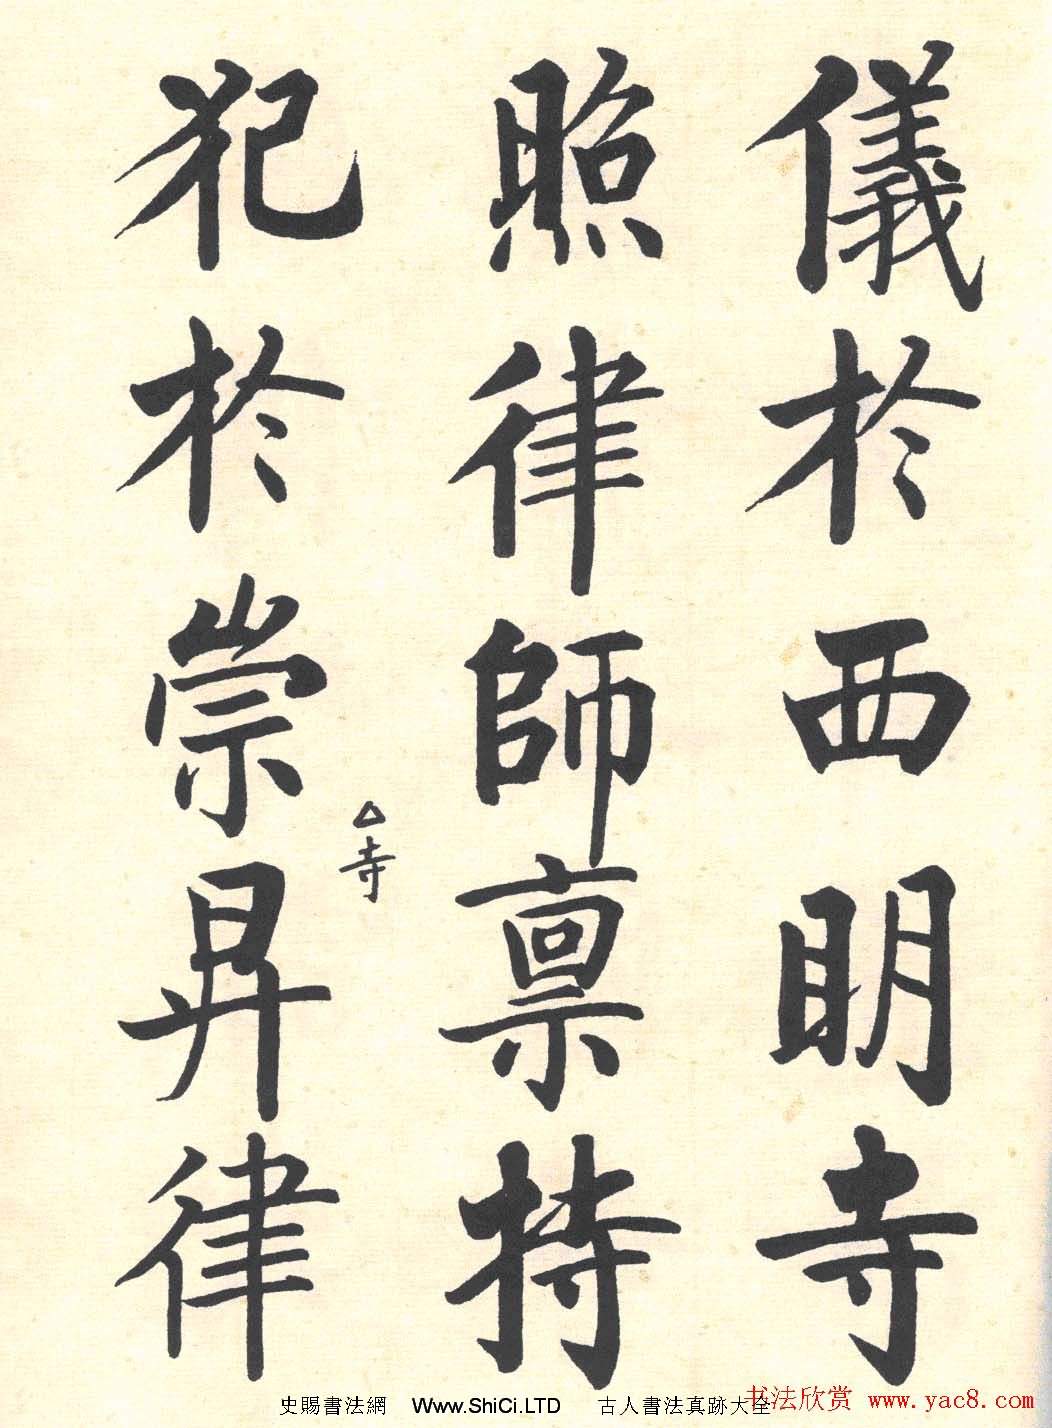 儀於西明寺
照律師禀持
△寺
犯於崇昇律
史賜書法網 Www.ShiCi.LTD 古人書法真跡大全
书法欣赏 www.yac8.com